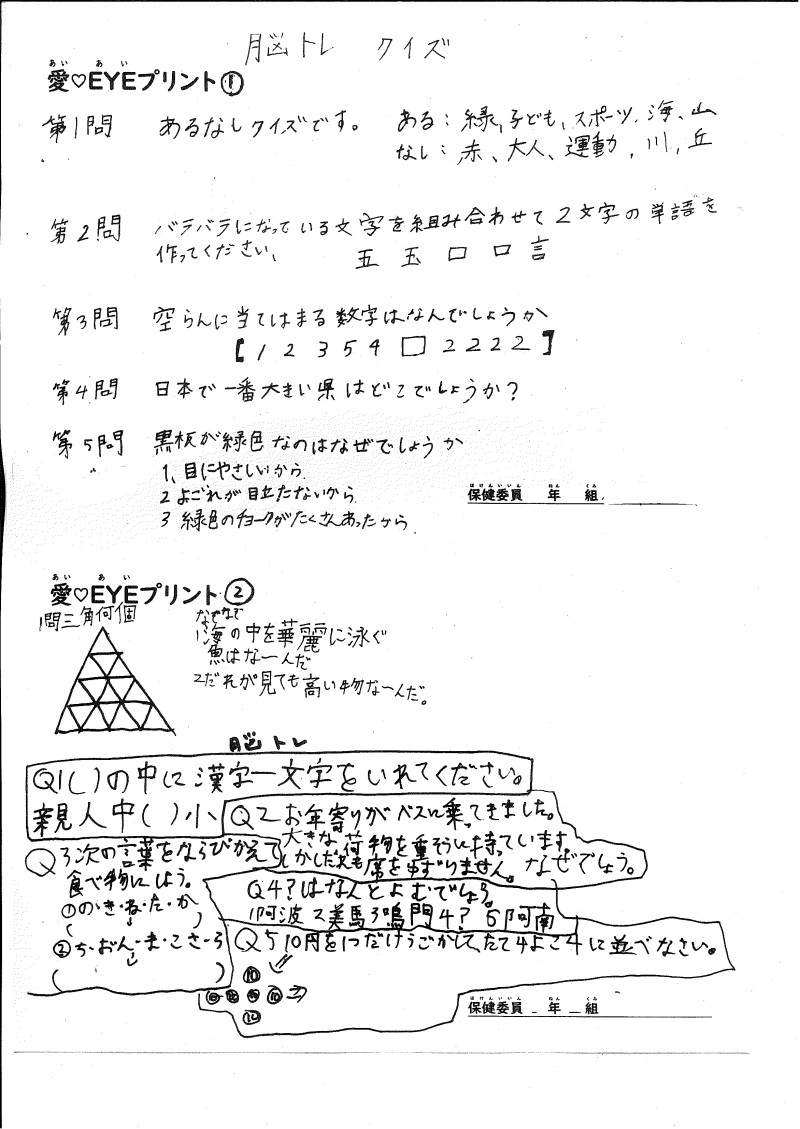 脳トレ クイズ
愛♡EYEプリント①
あい あい
第1問 あるなしクイズです。 ある：緑、子ども、スポーツ、海、山
なし：赤、大人、運動、川、丘
第2問 バラバラになっている文字を組み合わせて2文字の単語を
作ってください、 五 玉 口 口 言
第3問 空らんに当てはまる数字はなんでしょうか
【1 2 3 5 4 □ 2 2 2 2】
第4問 日本で一番大きい県はどこでしょうか？
第5問 黒板が緑色なのはなぜでしょうか
1、目にやさしいから
2 よごれが目立たないから
3 緑色のチョークがたくさんあったから
ほけんいいん ねん くみ
保健委員 年 組
あい あい
愛♡EYEプリント②
1問三角何個
なぞなぞ
1海の中を華麗に泳ぐ
魚はなーんだ
2だれが見ても高い物なーんだ。
脳トレ
Q1( )の中に漢字一文字をいれてください。
親人中( )小
Q2お年寄りがバスに乗ってきました。
大きな荷物を重そうに持っています。
しかしだれも席をゆずりません。なぜでしょう。
Q3次の言葉をならびかえて
食べ物にしよう。
①の・き・ね・た・か
( )
②ち・おん・ま・こ・さ・ろ
( )
Q4？はなんとよむでしょう。
1阿波2美馬3鳴門4？5阿南
Q5 10円を1つだけうごかして、たて4よこ4に並べなさい。
⑩
⑩⑩⑩⑩
⑩
ほけんいいん ねん くみ
保健委員 年 組